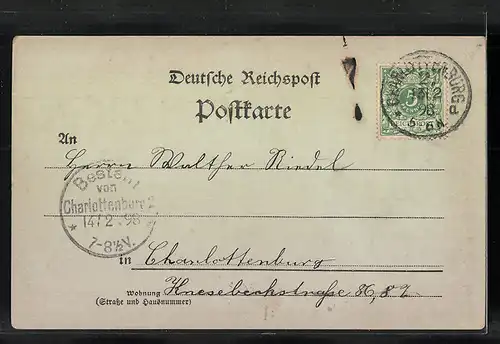 Deutsche Reichspost
Postkarte
An
Herrn Walther Riedel
in Charlottenburg
Wohnung Knesebeckstraße 86/87
(Straße und Hausnummer)
CHARLOTTENBURG
2
98
5
Bestellt
von
Charlottenburg 2
* 14/2.98 *
7-8½V.